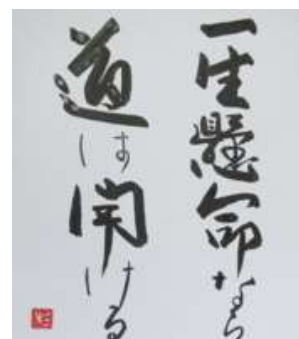 一生懸命なら
道は開ける